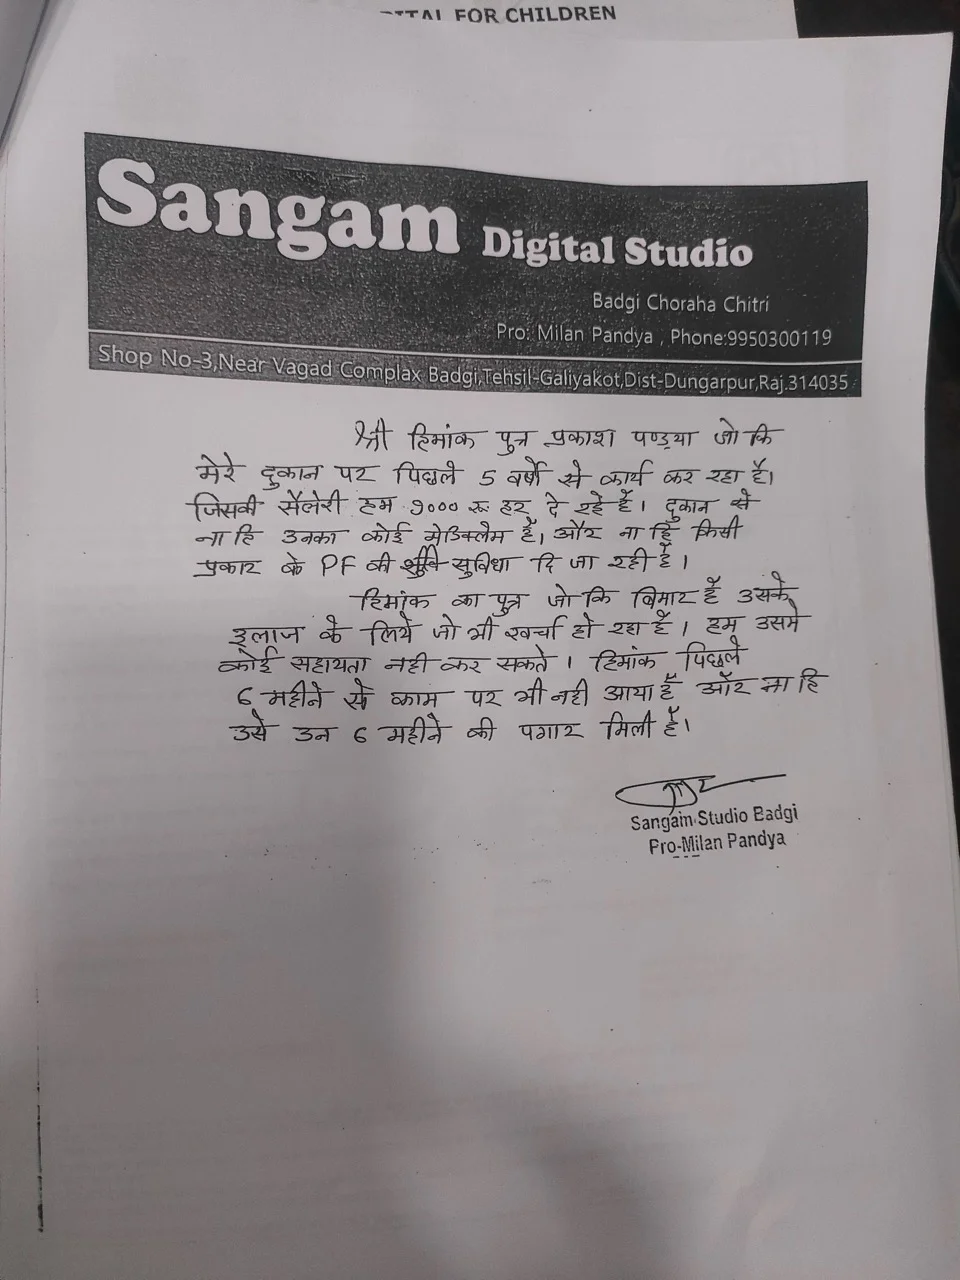 PITAL FOR CHILDREN
Sangam Digital Studio
Badgi Choraha Chitri
Pro: Milan Pandya , Phone:9950300119
Shop No-3,Near Vagad Complax Badgi,Tehsil-Galiyakot,Dist-Dungarpur,Raj.314035
श्री हिमांक पुत्र प्रकाश पण्ड्या जो कि
मेरे दुकान पर पिछले 5 वर्षो से कार्य कर रहा है।
जिसकी सैलेरी हम 9000 रू हर दे रहे है। दुकान से
ना हि उनका कोई मेडिक्लेम है। और ना हि किसी
प्रकार के PF की सुविधा दि जा रही है।
हिमांक का पुत्र जो कि बिमार है उसके
इलाज के लिये जो भी खर्चा हो रहा है। हम उसमे
कोई सहायता नही कर सकते। हिमांक पिछले
6 महीने से काम पर भी नही आया है और ना हि
उसे उन 6 महीने की पगार मिली है।
Sangam Studio Badgi
Pro-Milan Pandya